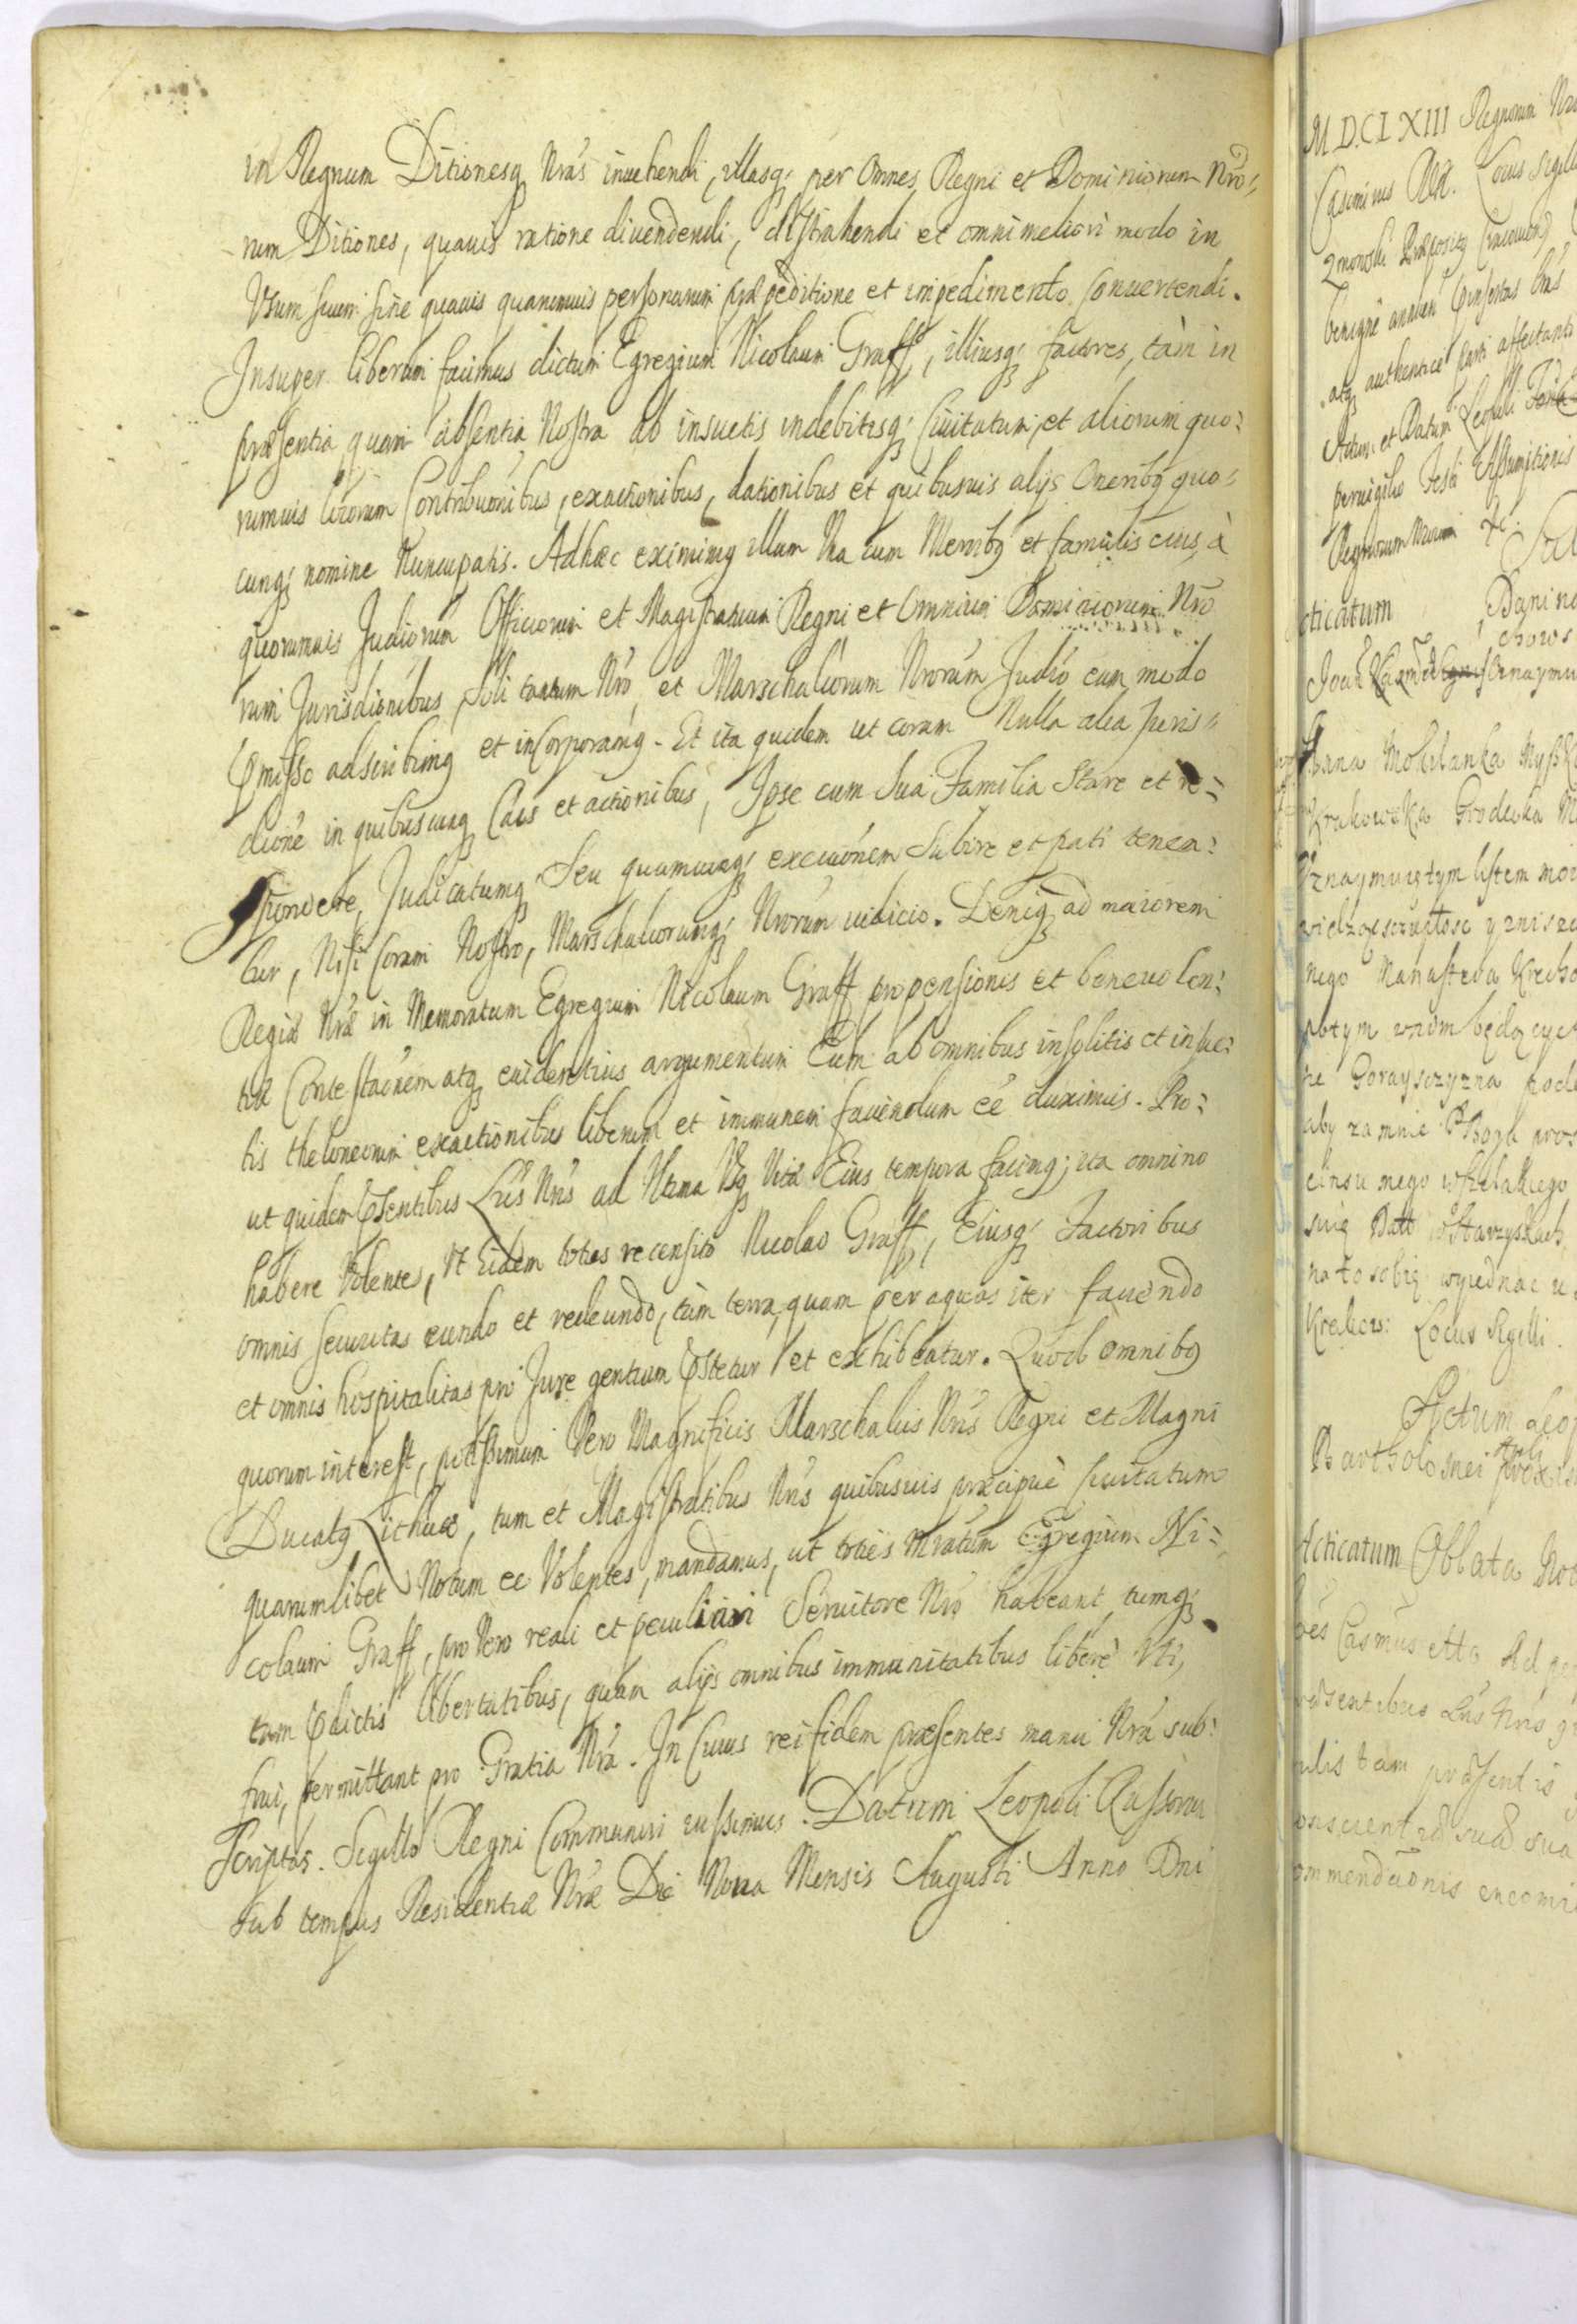 in Regnum Ditionesq Nras inuehendi, illasq; per Omnes Regni et Dominiorum Nro=
rum Ditiones, quauis ratione diuendendi, distrahendi et omni meliori modo in
Vsum suum sine quauis quarumuis personarum præpeditione et impedimento conuertendi.
Insuper liberum facimus dictum Egregium Nicolaum Graff, illiusq; factores, tàm in
præsentia quam absentia Nostra ab insuetis indebitisq; Ciuitatum, et aliorum quo=
rumuis locorum Contribuõnibus, exactionibus, dationibus et quibusuis alijs Oneribq quo=
cunq; nomine Nuncupatis. Ad hæc eximimq illum Vna cum Membq et famulis eius, à
quorumuis Judiciorum Officiorum et Magistratuum Regni et Omnium Dominiorum Nro
rum Jurisdionibus Soli tantum Nro, et Marschalcorum Nrorum Judio eum modo
pmisso adscribimq et incorporamq. Et ita quidem ut coram Nulla alia Juris=
dione in quibuscunq Cais et actionibus, Ipse cum Sua Familia Stare et re=
spondere, Judicatumq Seu quamcunq; execuõnem Subire et pati tenea=
tur, Nisi Coram Nostro, Marschalcorumq; Nrorum iudicio. Deniq ad maiorem
Regiæ Nræ in Memoratum Egregium Nicolaum Graff propensionis et beneuolen=
tiæ Contestaõnem atq euidentius argumentum Eum ab omnibus insolitis et insue=
tis theloneorum exactionibus liberum et immunem faciendum ee duximus. Pro=
ut quidem psentibus Lris Nris ad Vltima Vsq Vitæ Eius tempora facimq; ita omnino
habere Volentes, Vt Eidem toties recensito Nicolao Graff, Eiusq; Factoribus
omnis securitas eundo et redeundo, tàm terra quam per aquas iter faciendo
et omnis hospitalitas pro Jure gentium pstetur et exhibeatur. Quod omnibq
quorum interest, potissimum Vero Magnificis Marschalcis Nris Regni et Magni
Ducatq Lithuæ, tum et Magistratibus Nris quibusuis præcipuè Ciuitatum
quarumlibet Notum ee Volentes, mandamus, ut toties mratum Egregium Ni=
colaum Graff, pro Vero reali et peculiari Seruitore Nro habeant, eumq;
tam pdictis libertatibus, quam alijs omnibus immunitatibus liberè Vti,
frui, permittant pro Gratia Nra. In Cuius rei fidem præsentes manu Nra sub=
scriptas. Sigillo Regni Communiri iussimus. Datum Leopoli Russorum
sub tempus Residentiæ Nræ Die Nona Mensis Augusti Anno Dni
M.D.CLXIII Regnorum
Casimirus Rex. Locus Sigilli
atq authentice parti affectanti
Actum et Datum Leopoli
peruigilio Festi Assumptionis
Regnorum Nrorum
cticatum
Krakowska
Vznaymuię tym listem
nego
potym
aby za mnie P Boga
na to sobię wyiednac
Locus Sigilli.
Actum Leop
Bartholomei
Acticatum Oblata
Casimirus
ulis tam præsentis